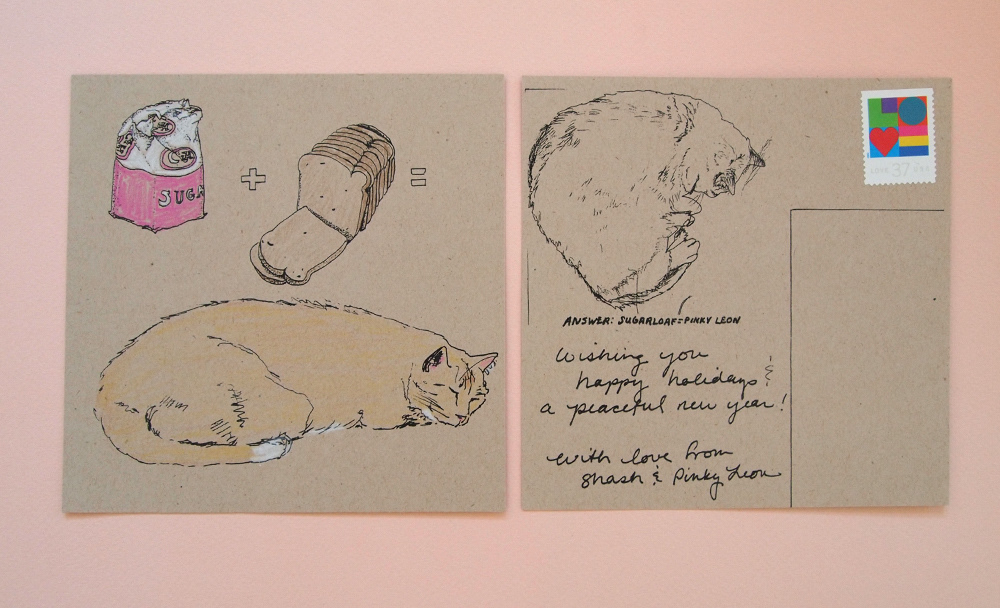 SUGA
+
=
ANSWER: SUGARLOAF=PINKY LEON
Wishing you
happy holidays &
a peaceful new year!
With love from
Shash & Pinky Leon
37 USA